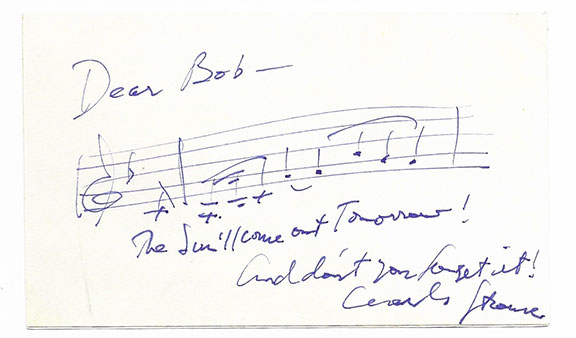 Dear Bob —
The Sun'll come out Tomorrow!
And don't you forget it!
Charles Strouse